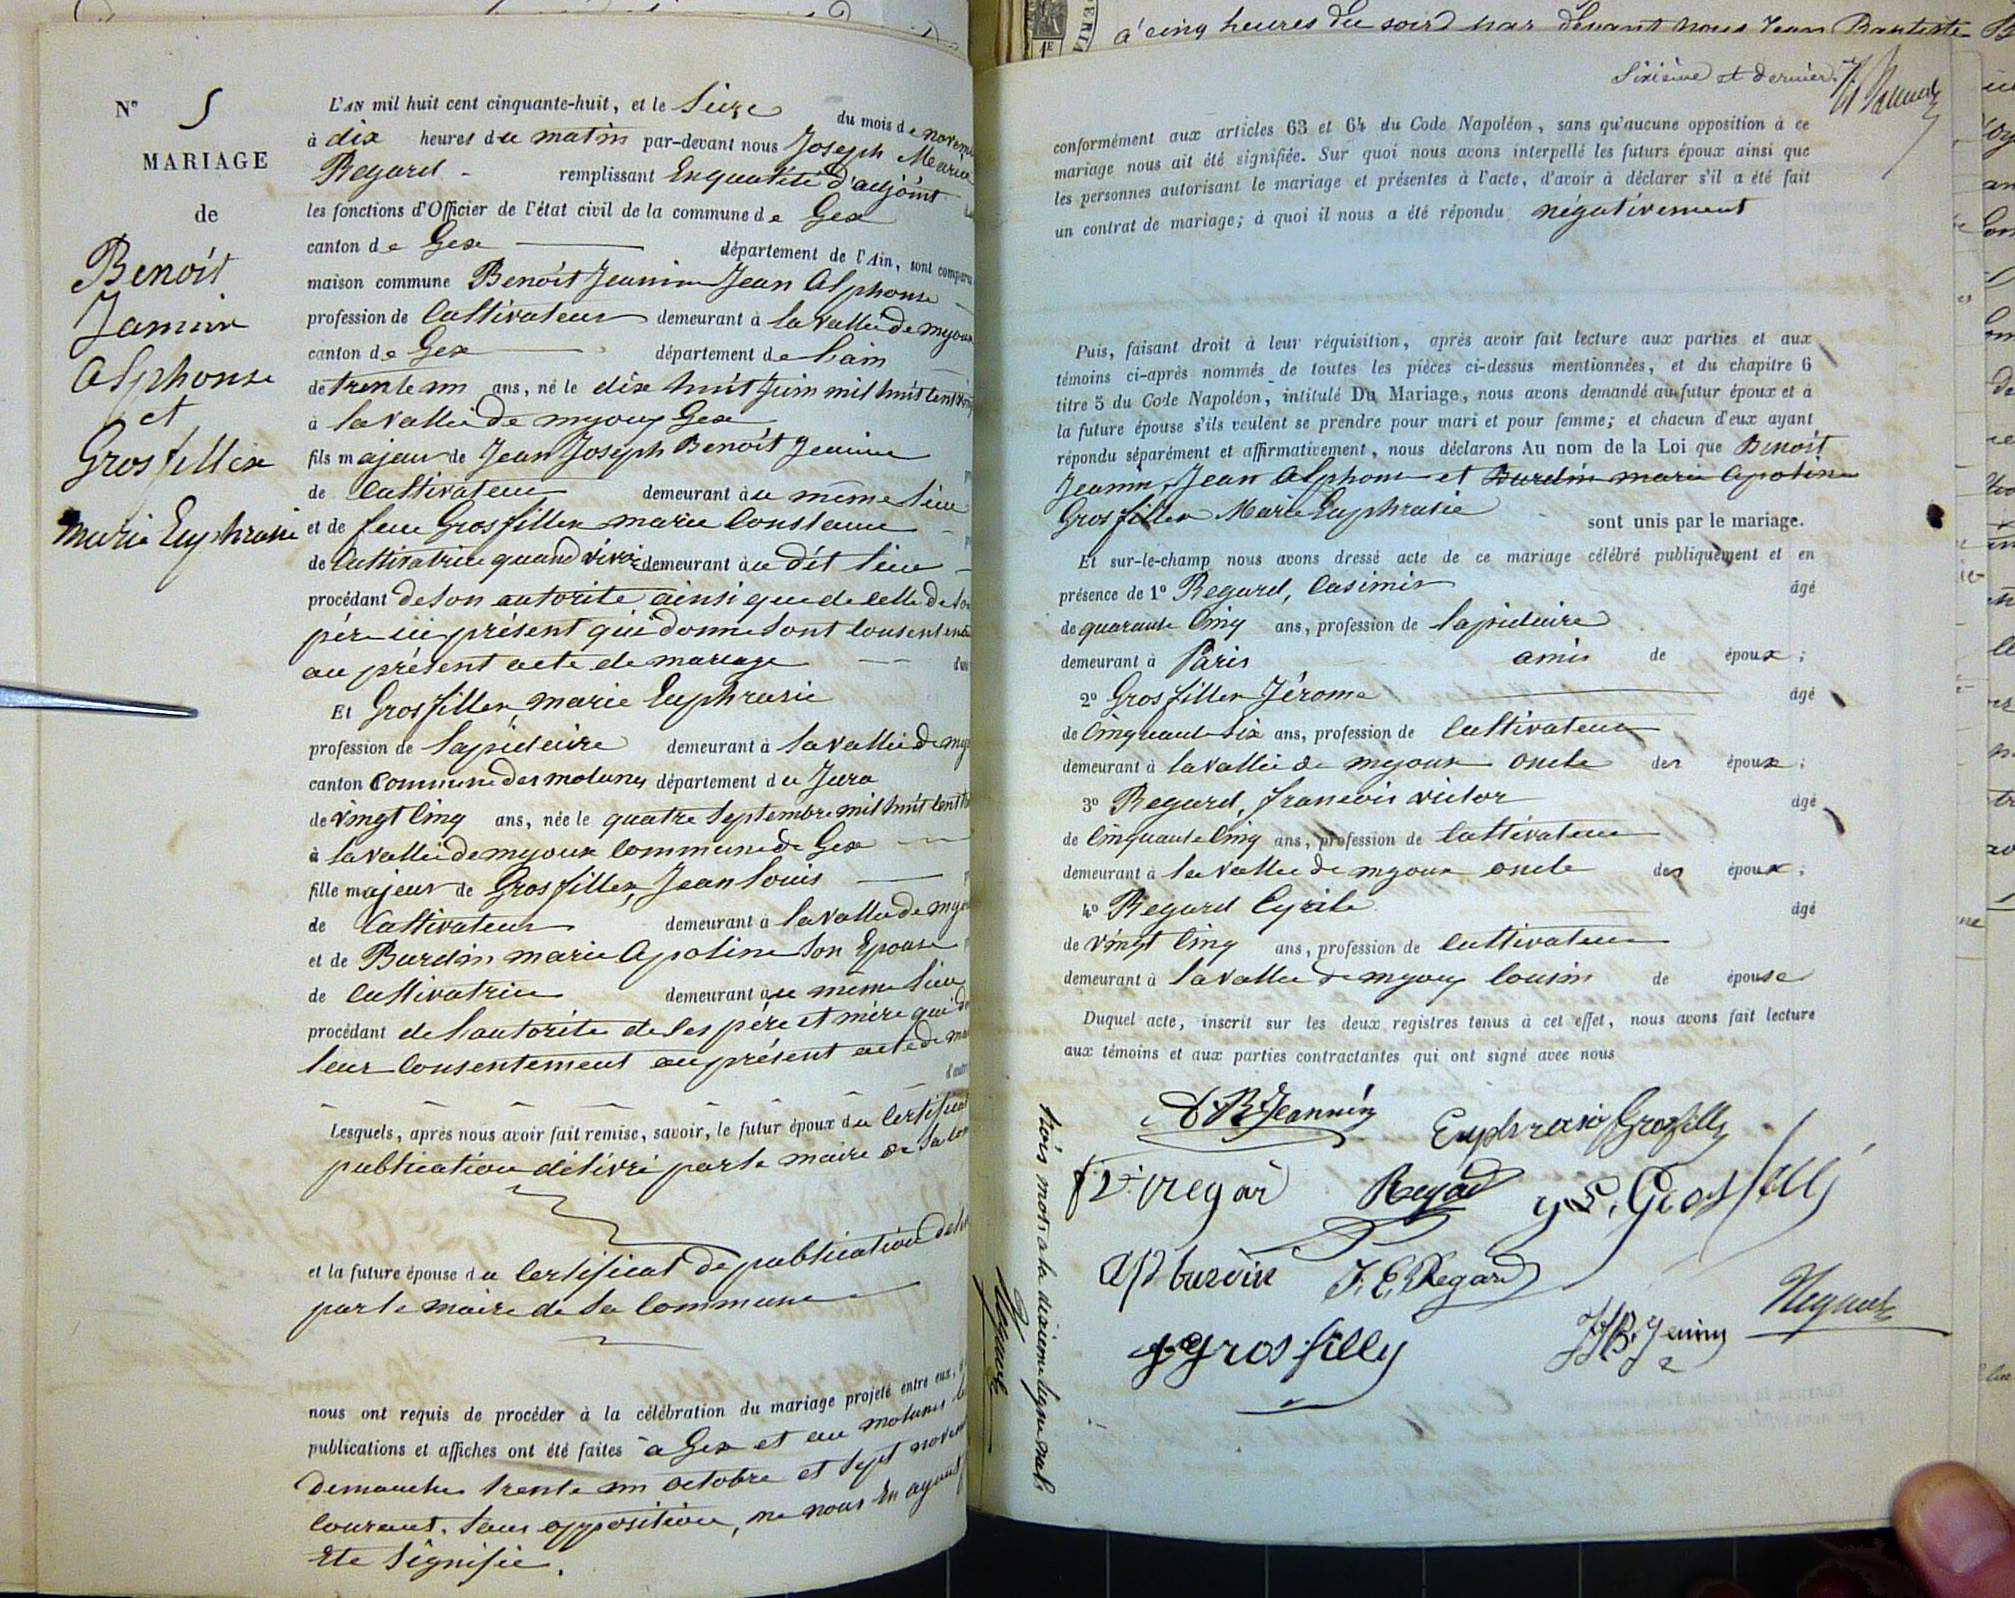 N° 5
MARIAGE
de
Benoît
Jannin
Alphonse
et
Grosfillex
Marie Euphrasie
L'AN mil huit cent cinquante-huit, et le Seize du mois de novem
à dix heures du matin par-devant nous Joseph Marie
Regard - remplissant En qualité d'adjoint
les fonctions d'Officier de l'état civil de la commune de Gex
canton de Gex département de l'Ain, sont comparus
maison commune Benoît Jeannin Jean Alphonse
profession de Cultivateur demeurant à la vallée de myoux
canton de Gex département de l'ain
de trente un ans, né le dix huit Juin mil huit cent
à la vallée de myoux Gex
fils majeur de Jean Joseph Benoît Jeannin
de Cultivateur demeurant au même lieu
et de feue Grosfillex marie Constance
de Cultivatrice quand vivai demeurant au dit lieu
procédant de son autorité ainsi que de celle de son
père ici présent qui donne sont consentem
au présent acte de mariage
Et Grosfillex, marie Euphrasie
profession de lapidaire demeurant à la vallée de my
canton Commune des molunes département du Jura
de vingt cinq ans, née le quatre Septembre mil huit cent
à la vallée de myoux commune de Gex
fille majeur de Grosfillex, Jean Louis
de Cultivateur demeurant à la vallée de myo
et de Burdin marie Apoline son Epouse
de Cultivatrice demeurant au même lieu
procédant de l'autorité de ses père et mère qui d
leur consentement au présent acte de ma
Lesquels, après nous avoir fait remise, savoir, le futur époux du Certificat
publication délivré par le maire de sa com
et la future épouse du Certificat de publication
par le maire de sa Commune
nous ont requis de procéder à la célébration du mariage projeté entre eux,
publications et affiches ont été faites à Gex et au molunes les
demanches trente un octobre et sept novem
courant. sans opposition, ne nous en ayant
été signifié.
à cinq heures du soir par devant nous Jean Baptiste
Sixième et dernier.
conformément aux articles 63 et 64 du Code Napoléon, sans qu'aucune opposition à ce
mariage nous ait été signifiée. Sur quoi nous avons interpellé les futurs époux ainsi que
les personnes autorisant le mariage et présentes à l'acte, d'avoir à déclarer s'il a été fait
un contrat de mariage; à quoi il nous a été répondu négativement
Puis, faisant droit à leur réquisition, après avoir fait lecture aux parties et aux
témoins ci-après nommés de toutes les pièces ci-dessus mentionnées, et du chapitre 6
titre 5 du Code Napoléon, intitulé Du Mariage, nous avons demandé au futur époux et à
la future épouse s'ils veulent se prendre pour mari et pour femme; et chacun d'eux ayant
répondu séparément et affirmativement, nous déclarons Au nom de la Loi que Benoît
Jeannin, Jean Alphonse et Burdin marie Apoline
Grosfillex Marie Euphrasie sont unis par le mariage.
Et sur-le-champ nous avons dressé acte de ce mariage célébré publiquement et en
présence de 1° Regard, Casimir âgé
de quarante Cinq ans, profession de lapidaire
demeurant à Paris amis de époux;
2° Grosfillex Jérome âgé
de Cinquante Six ans, profession de Cultivateur
demeurant à la vallée de myoux oncle des époux;
3° Regard, francois victor âgé
de Cinquante Cinq ans, profession de Cultivateur
demeurant à la vallée de myoux oncle des époux;
4° Regard Cyrile âgé
de vingt Cinq ans, profession de Cultivateur
demeurant à la vallée de myoux Cousin de épouse
Duquel acte, inscrit sur les deux registres tenus à cet effet, nous avons fait lecture
aux témoins et aux parties contractantes qui ont signé avec nous
A. B. Jeannin Euphrasie Grosfilly
F V regar Regad
J. E. Regard
Grosfilly
trois mots a la dixieme ligne nuls